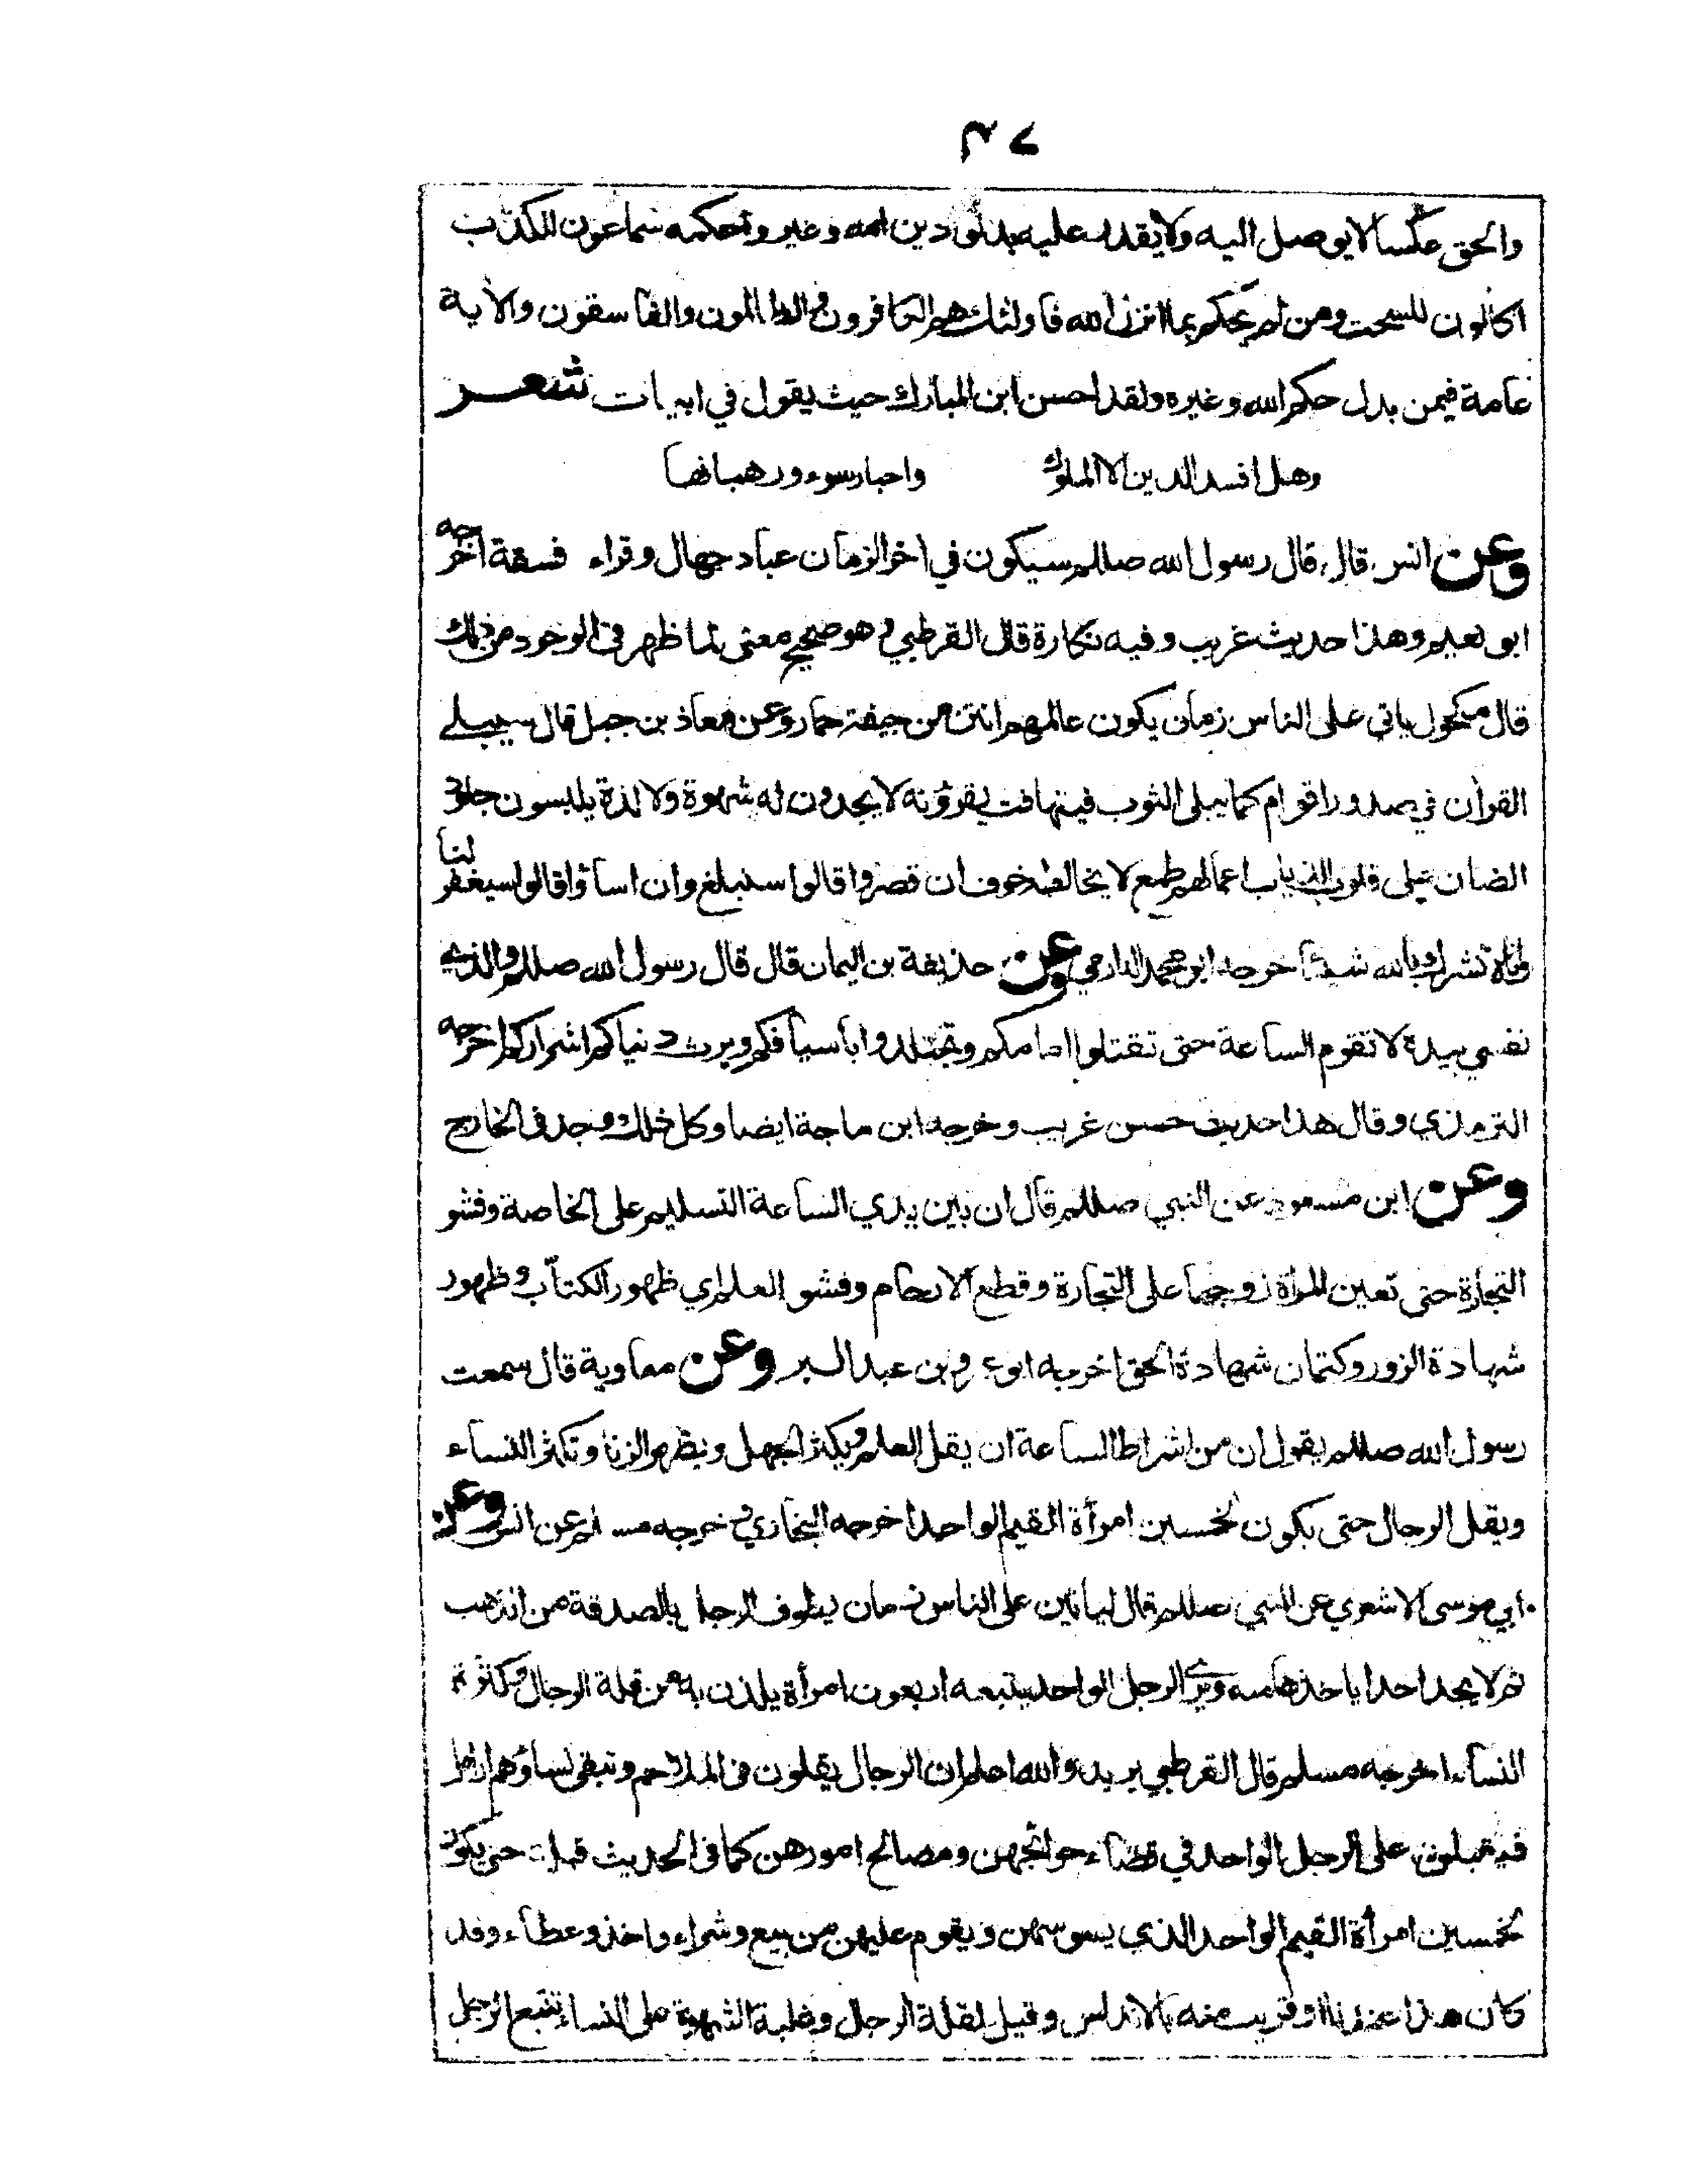 ٤٧
والحق عكسا لا يوصل اليه ولا يقدر عليه بدلوا دين الله وغيروا حكمه سماعون للكذب
اكالون للسحت ومن لم يحكم بما انزل الله فاولئك هم الكافرون والظالمون والفاسقون والآية
عامة فيمن بدل حكم الله وغيره ولقد احسن ابن المبارك حيث يقول في ابيات شعر
وهل افسد الدين الا الملوك واحبار سوء ورهبانها
وعن انس قال قال رسول الله صللم سيكون في اخر الزمان عباد جهال وقراء فسقة اخرجه
ابو نعيم وهذا حديث غريب وفيه نكارة قال القرطبي وهو صحيح معنى لما ظهر في الوجود من ذلك
قال مكحول ياتي على الناس زمان يكون عالمهم انتن من جيفة حمار وعن معاذ بن جبل قال سيبلى
القرآن في صدور اقوام كما يبلى الثوب فيتهافت يقرؤنه لا يجدون له شهوة ولا لذة يلبسون جلود
الضان على قلوب الذياب اعمالهم طمع لا يخالطه خوف ان قصروا قالوا سنبلغ وان اساؤا قالوا سيغفر لنا
انا لا نشرك بالله شيئا خرجه ابو محمد الدارمي وعن حذيفة بن اليمان قال قال رسول الله صللم والذي
نفسي بيده لا تقوم الساعة حتى تقتلوا امامكم وتجتلدوا باسيافكم ويرث دنياكم اشراركم اخرجه
الترمذي وقال هذا حديث حسن غريب وخرجه ابن ماجة ايضا وكل ذلك وجد في الخارج
وعن ابن مسعود عن النبي صللم قال ان بين يدي الساعة التسليم على الخاصة وفشو
التجارة حتى تعين المراة زوجها على التجارة وقطع الارحام وفشو العلم اي ظهور الكتاب وظهور
شهادة الزور وكتمان شهادة الحق اخرجه ابو عمر بن عبد البر وعن معاوية قال سمعت
رسول الله صللم يقول ان من اشراط الساعة ان يقل العلم ويكثر الجهل ويظهر الزنا وتكثر النساء
ويقل الرجال حتى يكون لخمسين امرأة القيم الواحد اخرجه البخاري وخرجه مسلم عن انس وعن
ابي موسى الاشعري عن النبي صللم قال لياتين على الناس زمان يطوف الرجل بالصدقة من الذهب
ثم لا يجد احدا ياخذها منه ويرى الرجل الواحد يتبعه اربعون امرأة يلذن به من قلة الرجال وكثرة
النساء اخرجه مسلم قال القرطبي يريد والله اعلم ان الرجال يقلون في الملاحم وتبقى نساؤهم ارامل
فيقبلون على الرجل الواحد في قضاء حوائجهن ومصالح امورهن كما في الحديث قبله حتى يكون
لخمسين امرأة القيم الواحد الذي يسوسهن ويقوم عليهن من بيع وشراء واخذ وعطاء وقد
كان هذا عندنا او قريب منه بالاندلس وقيل لقلة الرجال وغلبة الشهوة على النساء يتبع الرجل